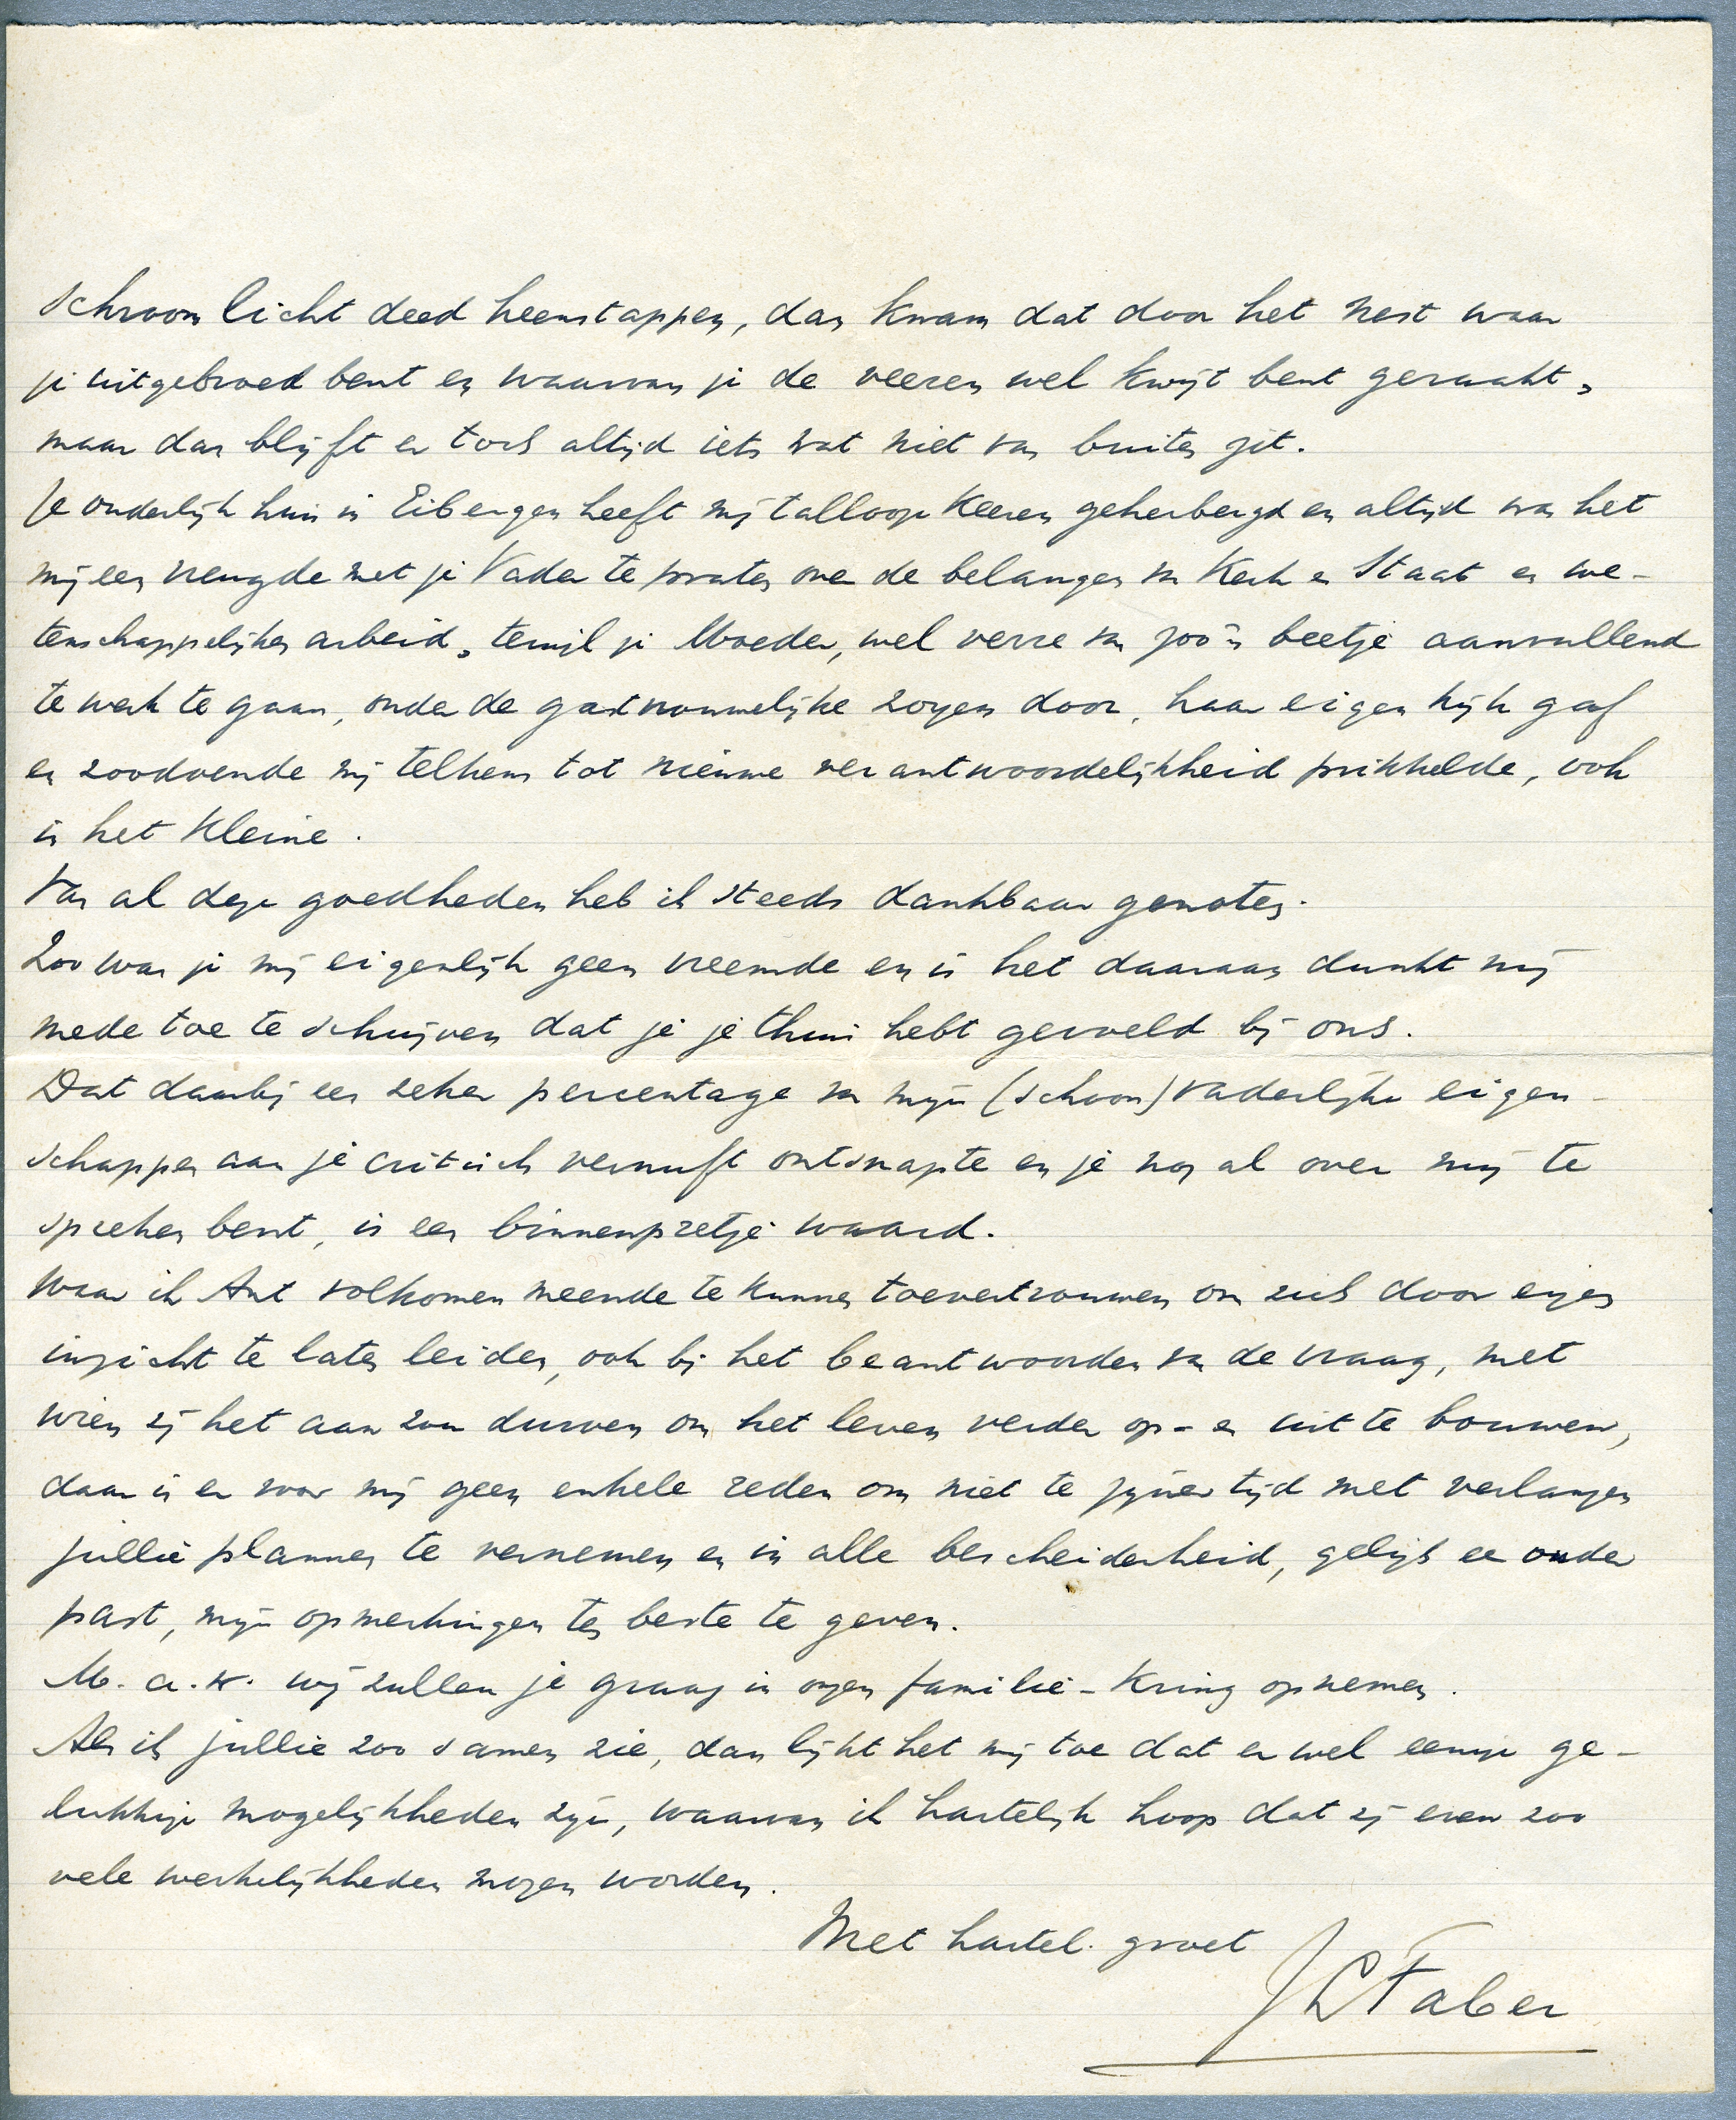 schroom licht deed heenstappen, dan kwam dat door het nest waar
je uitgebroed bent en waarvan je de veeren wel kwijt bent geraakt,
maar dan blijft er toch altijd iets wat niet van buiten zit.
Je ouderlijk huis in Eibergen heeft mij talloop keeren geherbergd en altijd was het
mij een vreugde met je Vader te praten over de belangen van Kerk en Staat en we-
tenschappelijken arbeid, terwijl je Moeder, wel verre van zoo'n beetje aanvullend
te werk te gaan, onder de gastvrouwelijke zorgen door, haar eigen kijk gaf
en zoodoende mij telkens tot nieuwe verantwoordelijkheid prikkelde, ook
in het kleine.
Van al deze goedheden heb ik steeds dankbaar genoten.
Zoo was je mij eigenlijk geen vreemde en is het daaraan dunkt mij
mede toe te schrijven dat je je thuis hebt gevoeld bij ons.
Dat daarbij een zeker percentage van mijn (schoon)vaderlijke eigen-
schappen aan je critisch vernuft ontsnapte en je nog al over mij te
spreken bent, is een binnenpretje waard.
Waar ik Ant volkomen meende te kunnen toevertrouwen om zich door eigen
inzicht te laten leiden, ook bij het beantwoorden van de vraag, met
wien zij het aan zou durven om het leven verder op- en uit te bouwen,
daar is er voor mij geen enkele reden om niet te zijner tijd met verlangen
jullie plannen te vernemen en in alle bescheidenheid, gelijk een ouder
past, mijn opmerkingen ten beste te geven.
M. a. w. wij zullen je graag in onzen familie-kring opnemen.
Als ik jullie zoo samen zie, dan lijkt het mij toe dat er wel eenige ge-
lukkige mogelijkheden zijn, waarvan ik hartelijk hoop dat zij even zoo
vele werkelijkheden mogen worden.
Met hartel. groet
Faber